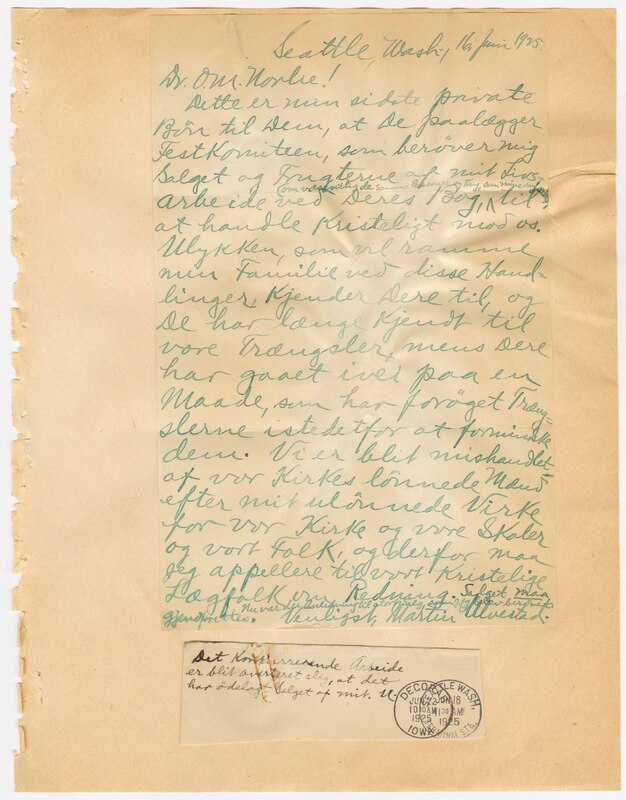 Seattle, Wash., 16 Juni 1925.
Dr. O.M. Norlie!
Dette er min sidste private
Bön til Dem, at De paalægger
Festkomiteen, som beröver mig
Salget og Frugterne af mit Livs-
arbeide ved Deres Bog, til
at handle Kristeligt mod os.
Ulykken, som vil ramme
min Familie ved disse Hand-
linger, Kjender Dere til, og
De har længe Kjendt til
vore Trængsler, mens Dere
har gaaet ivei paa en
Maade, som har foröget Træng-
slerne istedetfor at formindske
dem. Vi er blit mishandlet
af vor Kirkes lönnede Mænd
efter mit ulönnede Virke
for vor Kirke og vore Skoler
og vort Folk, og derfor maa
jeg appellere til vort Kristelige
Lægfolk om Redning. Salget maa
gjenoprettes. Venligst, Martin Ulvestad.
Det Konkurrerende Arbeide
er blit averteret slig, at det
har ödelagt Salget af mit. U.
DECORAH
JUN 22
10 AM
1925
IOWA
SEATTLE WASH.
JUN 16
11 30 AM
1925
TERMINAL STA.